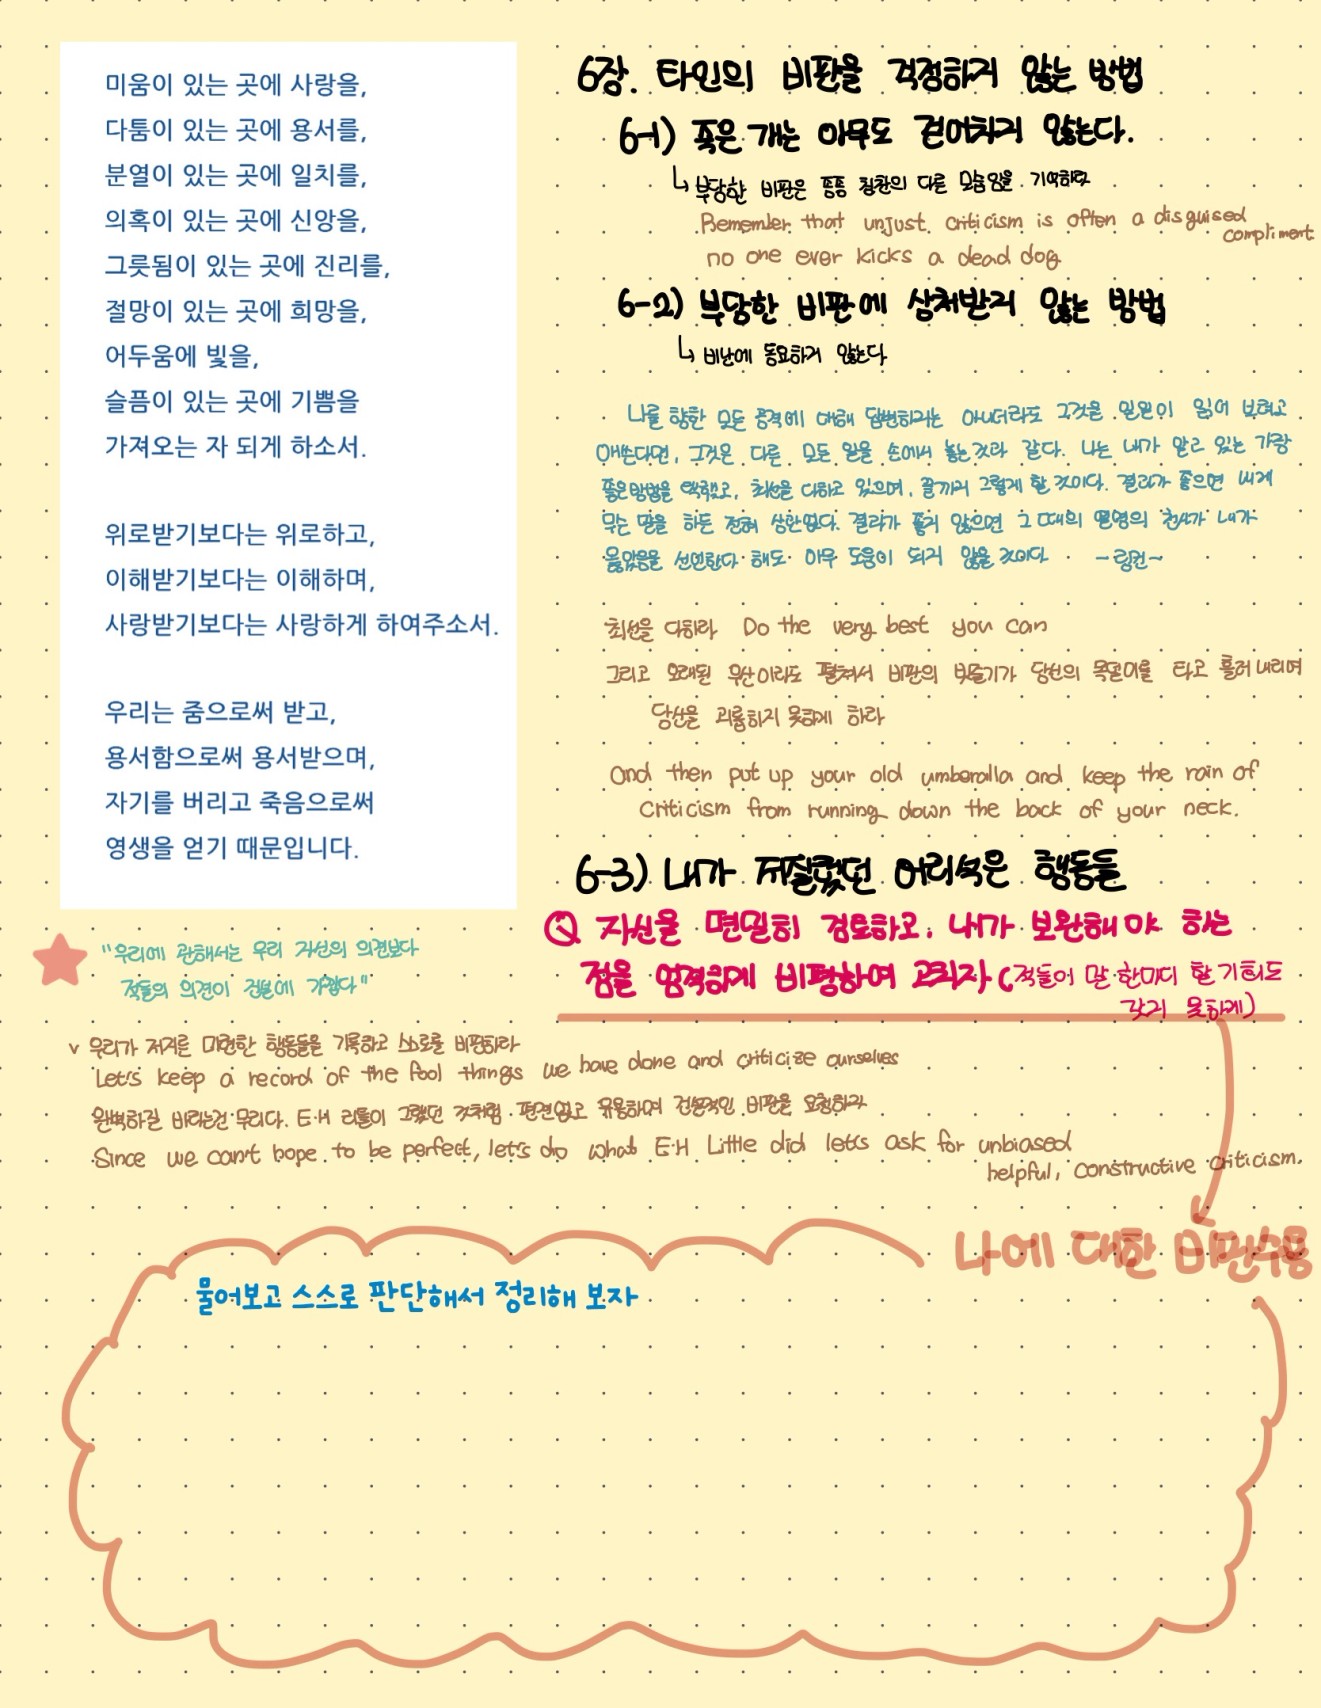 미움이 있는 곳에 사랑을,
다툼이 있는 곳에 용서를,
분열이 있는 곳에 일치를,
의혹이 있는 곳에 신앙을,
그릇됨이 있는 곳에 진리를,
절망이 있는 곳에 희망을,
어두움에 빛을,
슬픔이 있는 곳에 기쁨을
가져오는 자 되게 하소서.
위로받기보다는 위로하고,
이해받기보다는 이해하며,
사랑받기보다는 사랑하게 하여주소서.
우리는 줌으로써 받고,
용서함으로써 용서받으며,
자기를 버리고 죽음으로써
영생을 얻기 때문입니다.
6장. 타인의 비판을 걱정하지 않는 방법
6-1) 죽은 개는 아무도 걷어차지 않는다.
↳ 부당한 비판은 종종 칭찬의 다른 모습임을 기억하라
Remember that unjust criticism is often a disguised
compliment
no one ever kicks a dead dog
6-2) 부당한 비판에 상처받지 않는 방법
↳ 비난에 동요하지 않는다
나를 향한 모든 공격에 대해 답변하라는 아니더라도 그것을 일일이 읽어 보려고
애쓴다면, 그것은 다른 모든 일을 손에서 놓는 것과 같다. 나는 내가 알고 있는 가장
좋은 방법을 택했고, 최선을 다하고 있으며, 끝까지 그렇게 할 것이다. 결과가 좋으면 내게
무슨 말을 하든 전혀 상관없다. 결과가 좋지 않으면 그때의 열명의 천사가 내가
옳았음을 선언한다 해도 아무 도움이 되지 않을 것이다 -링컨-
최선을 다하라 Do the very best you can
그리고 오래된 우산이라도 펼쳐서 비판의 빗줄기가 당신의 목덜미를 타고 흘러내리며
당신을 괴롭히지 못하게 하라
And then put up your old umberalla and keep the rain of
criticism from running down the back of your neck.
6-3) 내가 저질렀던 어리석은 행동들
Q 자신을 면밀히 검토하고, 내가 보완해야 하는
점을 엄격하게 비평하여 고치자 (적들이 말 한마디 할 기회도
갖지 못하게)
"우리에 관해서는 우리 자신의 의견보다
적들의 의견이 진실에 가깝다"
v 우리가 저지른 미련한 행동들을 기록하고 스스로를 비판하라
Let's keep a record of the fool things we have done and criticize ourselves
완벽하길 바라는건 무리다. E.H 리틀이 그랬던 것처럼 편견없고 유용하며 건설적인 비판을 요청하라
Since we can't hope to be perfect, let's do what E.H Little did let's ask for unbiased
helpful, constructive criticism.
나에 대한 비판수용
물어보고 스스로 판단해서 정리해 보자